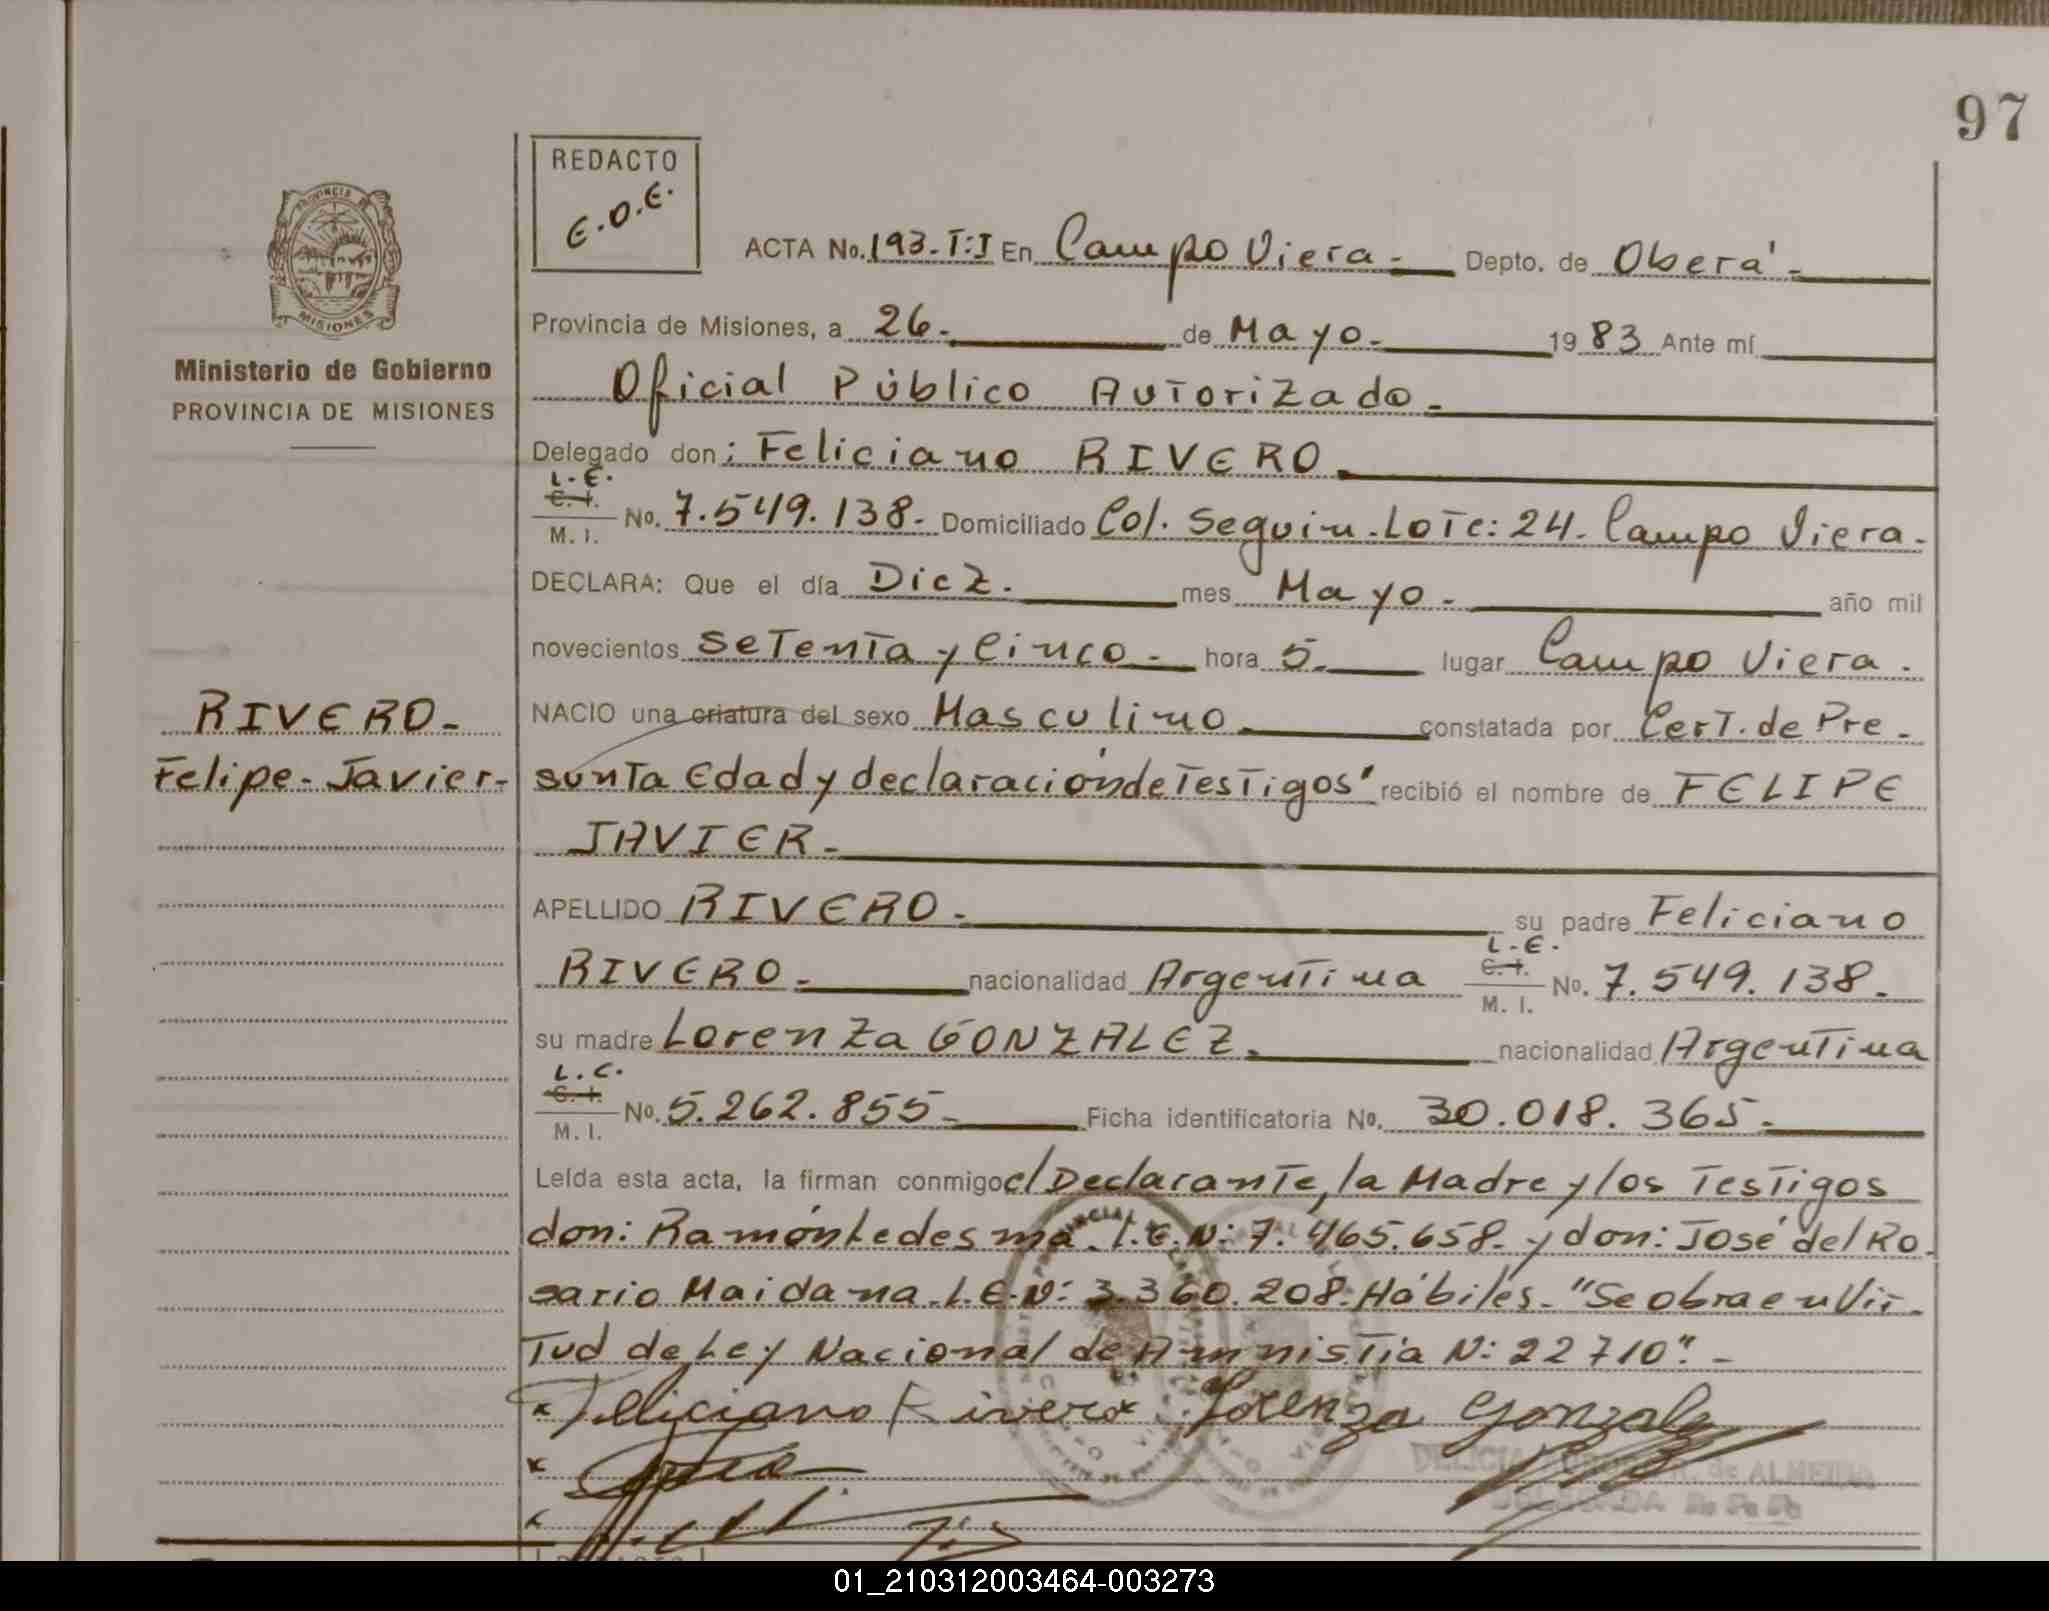 97
REDACTO
E.O.E.
ACTA No. 193-T:I En Campo Viera - Depto. de Oberá -
PROVINCIA DE
MISIONES
Provincia de Misiones, a 26. de Mayo. 1983 Ante mí
Ministerio de Gobierno
PROVINCIA DE MISIONES
Oficial Público Autorizado.
Delegado don: Feliciano RIVERO.
L.E.
C.I. No. 7.549.138. Domiciliado Col. Seguin. Lote: 24. Campo Viera.
M. I.
DECLARA: Que el día Diez. mes Mayo. año mil
novecientos setenta y cinco. hora 5. lugar Campo Viera.
NACIO una criatura del sexo Masculino constatada por Cert. de Pre-
sunta Edad y declaración de Testigos" recibió el nombre de FELIPE
JAVIER.
RIVERO-
Felipe-Javier-
APELLIDO RIVERO. su padre Feliciano
RIVERO. nacionalidad Argentina L.E. C.I. M. I. No. 7.549.138.
su madre Lorenza GONZALEZ. nacionalidad Argentina
L.C.
C.I. No. 5.262.855. Ficha identificatoria No. 30.018.365.
M. I.
Leída esta acta, la firman conmigo el Declarante, la Madre y los Testigos
don: Ramón Ledesma. L.E.N: 7.465.658. y don: José del Ro-
sario Maidana. L.E.N: 3.360.208. Hábiles. "Se obra en Vir-
tud de Ley Nacional de Amnistía N: 22710". -
x Feliciano Rivero x Lorenza Gonzalez
x
x
DELICIA R. de ALMEIDA
DELEGADA
01_210312003464-003273